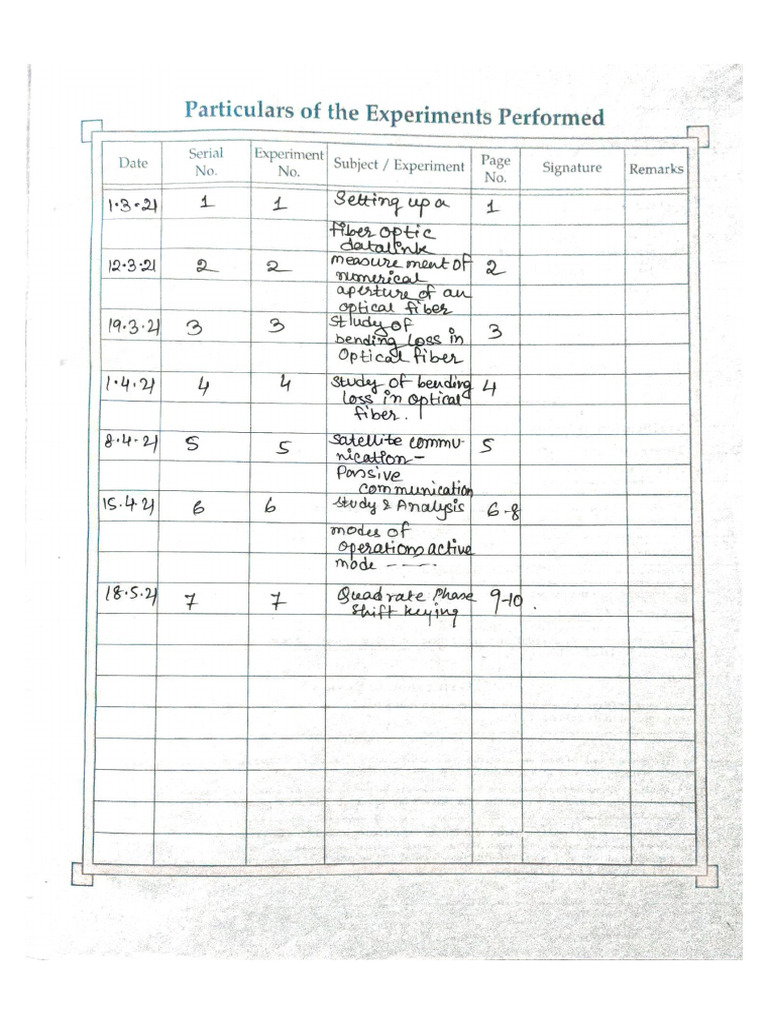 Particulars of the Experiments Performed
Date Serial No. Experiment No. Subject / Experiment Page No. Signature Remarks
1.3.21 1 1 Setting up a 1
fiber optic
datalink
12.3.21 2 2 measurement of 2
numerical
aperture of an
optical fiber
19.3.21 3 3 Study of 3
bending loss in
Optical fiber
1.4.21 4 4 Study of bending 4
loss in optical
fiber.
8.4.21 5 5 Satellite commu- 5
nication-
Passive
communication
15.4.21 6 6 Study & Analysis 6-8
modes of
operations active
mode ----
18.5.21 7 7 Quadrate Phase 9-10.
Shift keying